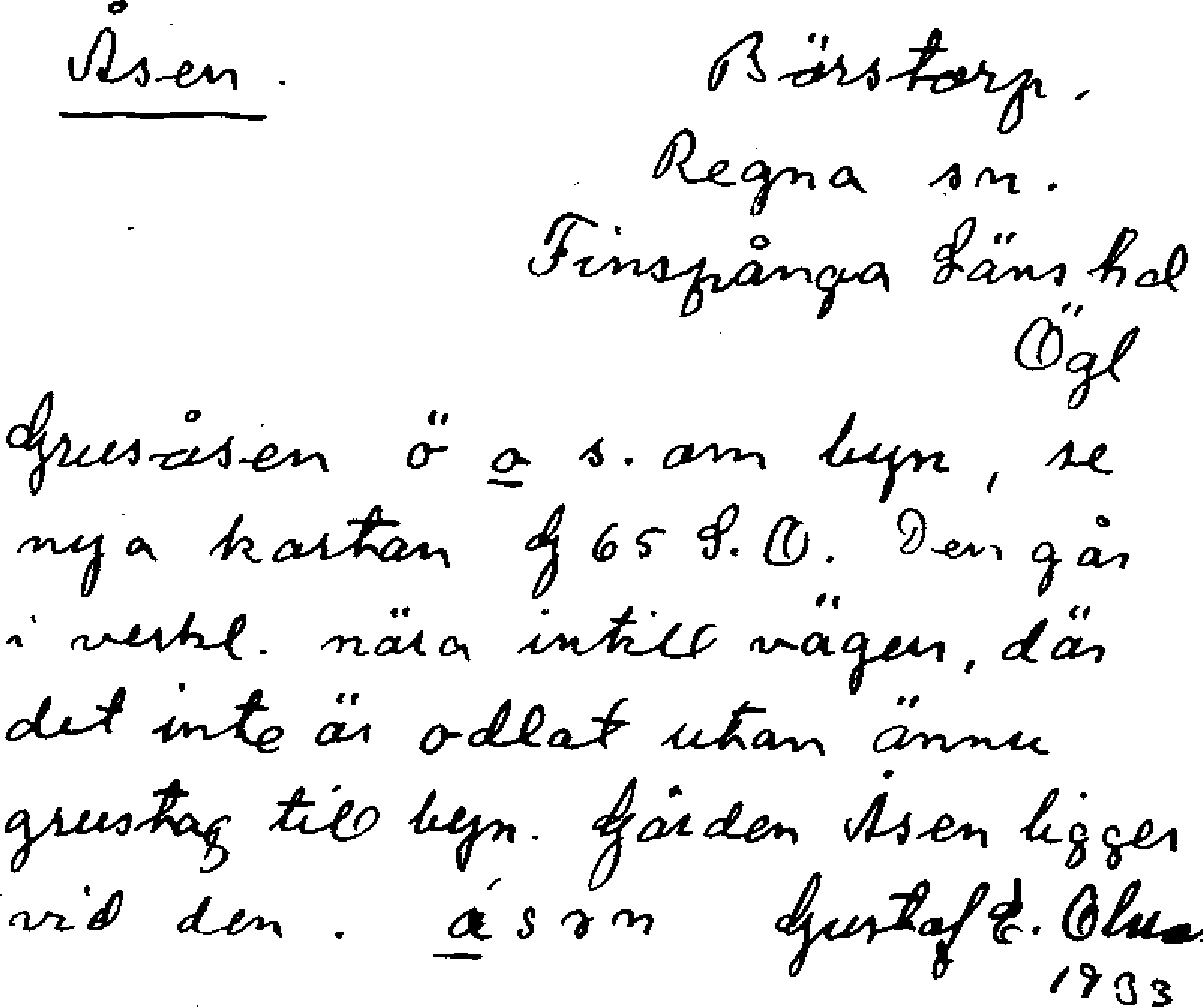 Åsen. Börstorp.
Regna sn.
Finspånga Läns hd
Ögl
Grusåsen ö o s. om byn, se
nya kartan G 65 S.O. Den går
i verkl. nära intill vägen, där
det inte är odlat utan ännu
grustag till byn. Gården Åsen ligger
vid den. Gustaf E.
1933